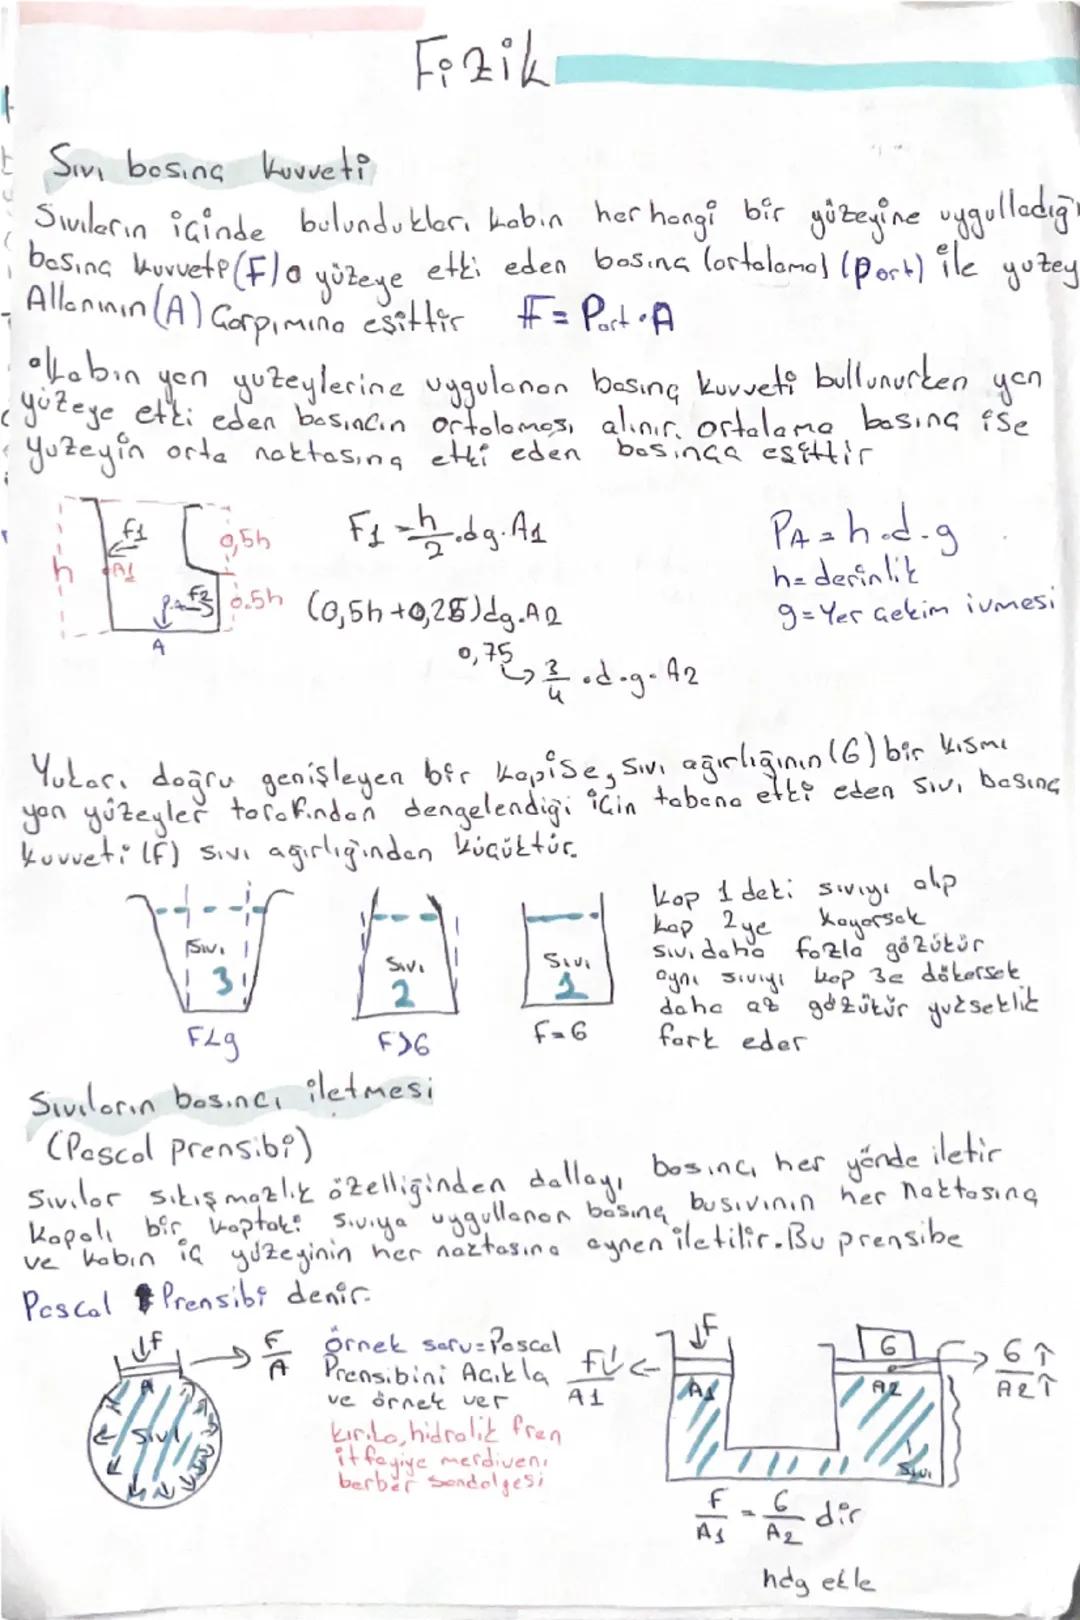 Fizik
Sıvı basınç kuvveti
Sıvıların içinde bulundukları kabın herhangi bir yüzeyine uygulladığı
basınç kuvveti (F) o yüzeye etki eden basınç (ortalama) (Port) ile yüzey
Allanının (A) Çarpımına eşittir F = Port . A
• Kabın yan yüzeylerine uygulanan basınç kuvveti bullunurken yan
yüzeye etki eden basıncın ortalaması alınır. ortalama basınç ise
yüzeyin orta noktasına etki eden basınca eşittir
h
F1
A1
0,5h
F2
0.5h
PA
A
F1 = h/2 . dg. A1
(0,5h + 0,25)dg. A2
0,75
3/4 . d . g . A2
PA = h . d . g
h = derinlik
g = Yer Çekim ivmesi
Yukarı doğru genişleyen bir kapise, sıvı ağırlığının (G) bir kısmı
yan yüzeyler tarafından dengelendiği için tabana etki eden sıvı basınç
kuvveti (F) sıvı ağırlığından küçüktür.
Sıvı
3
F<g
Sıvı
2
F>G
Sıvı
1
F=G
Kap 1 deki sıvıyı alıp
kap 2ye koyarsak
sıvı daha fazla gözükür
aynı sıvıyı kap 3e dökersek
daha az gözükür yükseklik
fark eder
Sıvıların basıncı iletmesi
(Pascal prensibi)
Sıvılar sıkışmazlık özelliğinden dallayı basıncı her yönde iletir
Kapalı bir kaptaki sıvıya uygullanan basınç busıvının her noktasına
ve kabın iç yüzeyinin her noktasına aynen iletilir. Bu prensibe
Pascal Prensibi denir.
F
F/A
A
Sıvı
örnek soru = Pascal
Prensibini Açıkla
ve örnek ver
kriko, hidrolik fren
itfayiye merdiveni
berber sandalyesi
F
F/A1
A1
G
A2
G/A2
Sıvı
F/A1 = G/A2 dir
hdg ekle